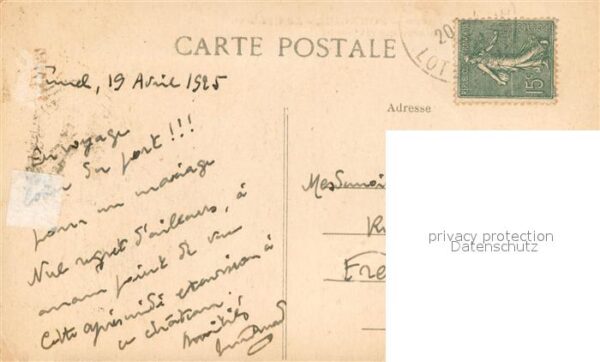 CARTE POSTALE
20
LOT
15c
, 19 Avril 1925
Adresse
En voyage
port !!!
pour un mariage
Nul regret d'ailleurs, à
aucun point de vue
Cette après-midi excursion à
ce château.
Amitiés
privacy protection
Datenschutz